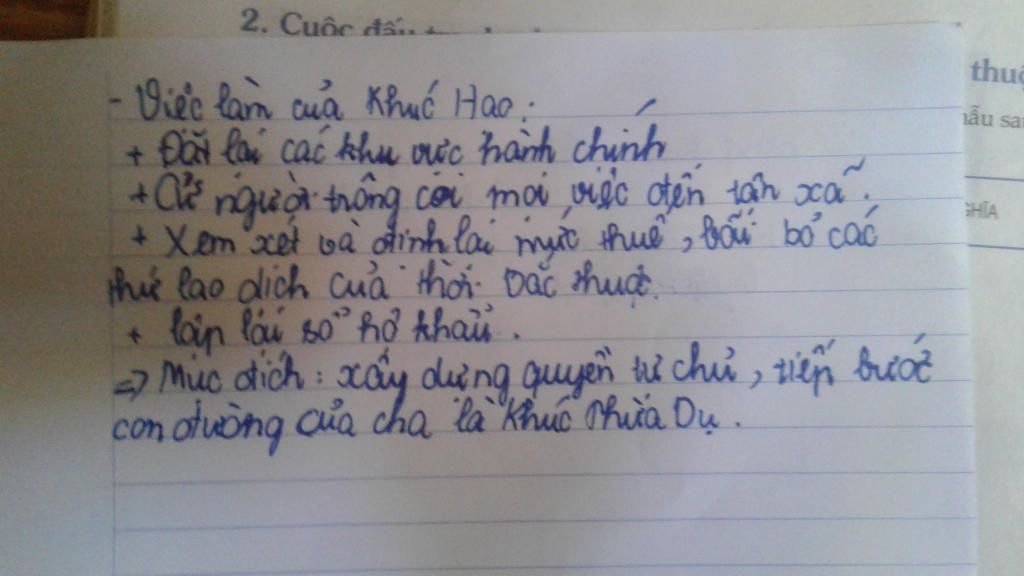 2. Cuộc đấu
thuộ
mẫu sau
GHĨA
- Việc làm của Khúc Hạo:
+ Đặt lại các khu vực hành chính
+ Cử người trông coi mọi việc đến tận xã.
+ Xem xét và định lại mức thuế, bãi bỏ các
thứ lao dịch của thời Bắc thuộc.
+ lập lại sổ hộ khẩu.
=> Mục đích: xây dựng quyền tự chủ, tiếp bước
con đường của cha là Khúc Thừa Dụ.